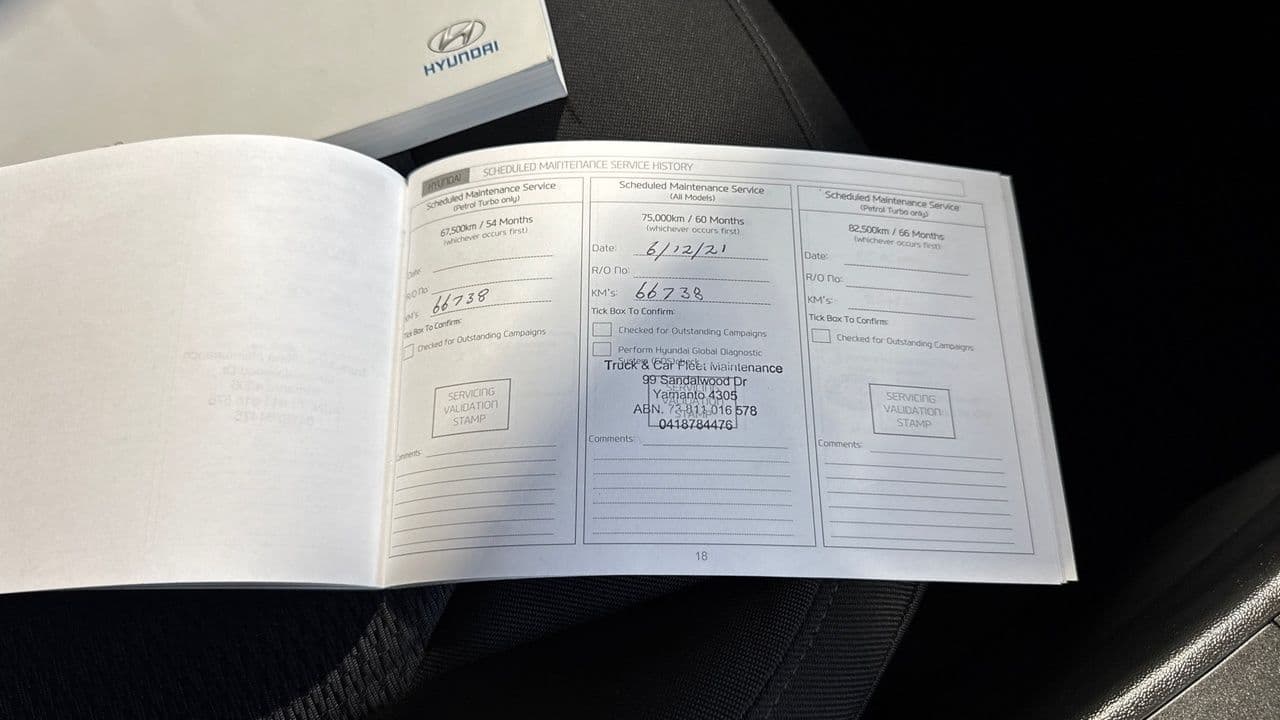 HYUNDAI
HYUNDAI
SCHEDULED MAINTENANCE SERVICE HISTORY
Scheduled Maintenance Service
(Petrol Turbo only)
67,500km / 54 Months
(whichever occurs first)
Date:
R/O No:
KM's: 66738
Tick Box To Confirm:
Checked for Outstanding Campaigns
SERVICING
VALIDATION
STAMP
Comments:
Scheduled Maintenance Service
(All Models)
75,000km / 60 Months
(whichever occurs first)
Date: 6/12/21
R/O No:
KM's: 66738
Tick Box To Confirm:
Checked for Outstanding Campaigns
Perform Hyundai Global Diagnostic
System (GDS) check
Truck & Car Fleet Maintenance
99 Sandalwood Dr
Yamanto 4305
ABN. 73 811 016 578
0418784476
SERVICING
VALIDATION
STAMP
Comments:
Scheduled Maintenance Service
(Petrol Turbo only)
82,500km / 66 Months
(whichever occurs first)
Date:
R/O No:
KM's:
Tick Box To Confirm:
Checked for Outstanding Campaigns
SERVICING
VALIDATION
STAMP
Comments:
18